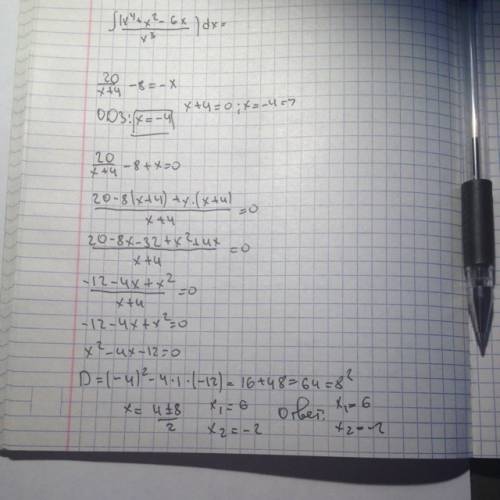 ∫(x⁴+x²-6x)/x³)dx=
20/(x+4) -8=-x
ОДЗ: x=-4 x+4=0; x=-4=>
20/(x+4) -8+x=0
(20-8(x+4)+x·(x+4))/(x+4) =0
(20-8x-32+x²+4x)/(x+4) =0
(-12-4x+x²)/(x+4) =0
-12-4x+x²=0
x²-4x-12=0
D=(-4)²-4·1·(-12)=16+48=64=8²
x=(4±8)/2 x₁=6 Ответ: x₁=6
x₂=-2 x₂=-2